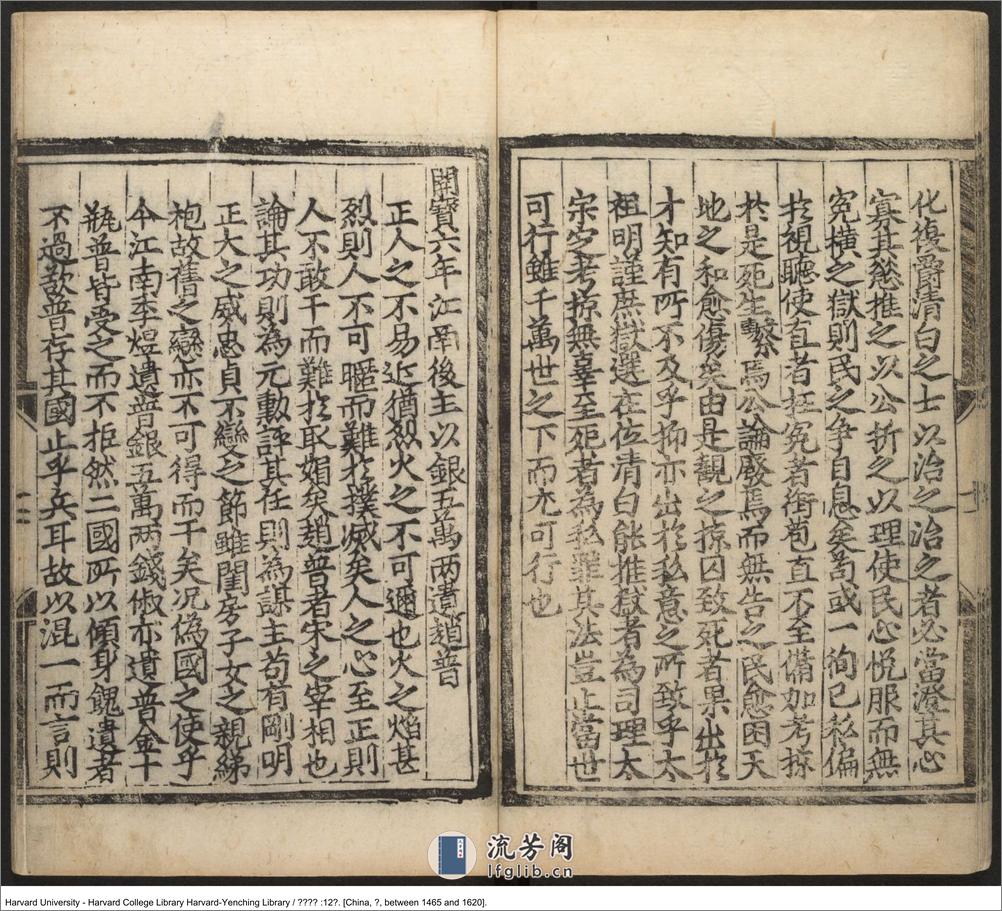 化復爵清白之士以治之治之者必當澄其心
寡其慾推之以公折之以理使民心悅服而無
冤橫之獄則民之争自息矣苟或一徇已私偏
扵視聽使直者枉冤者銜苞直不至備加考掠
扵是死生繫焉公論廢焉而無告之民愈困天
地之和愈傷矣由是觀之掠囚致死者果出扵
才知有所不及乎抑亦出扵私意之所致乎太
祖明謹庶獄選在位清白能推獄者為司理太
宗定考掠無辜至死者為私罪其法豈止當世
可行雖千萬世之下而尤可行也
開寳六年江南後主以銀五萬两遺趙普
正人之不易近猶烈火之不可邇也火之焰甚
烈則人不可暱而難扵撲滅矣人之心至正則
人不敢干而難扵取媚矣趙普者宋之宰相也
論其功則為元勳評其任則為謀主苟有剛明
正大之威忠貞不變之節雖閨房子女之親綈
袍故舊之戀亦不可得而干矣况偽國之使乎
今江南李煜遺普銀五萬两錢俶亦遺普金十
瓶普皆受之而不拒然二國所以傾身餽遺者
不過欲普存其國止乎兵耳故以混一而言則
流芳阁
lfglib.cn
Harvard University - Harvard College Library Harvard-Yenching Library / ???? :12?. [China, ?, between 1465 and 1620].